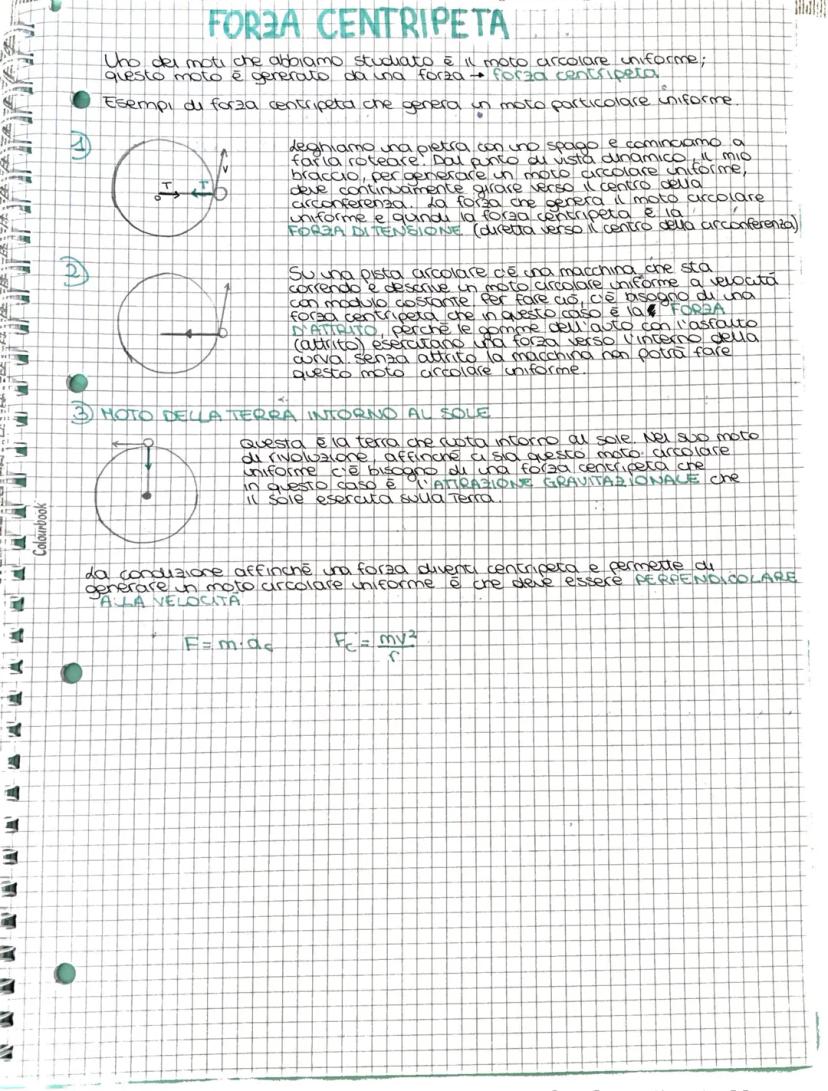 FORZA CENTRIPETA
Uno dei moti che abbiamo studiato è il moto circolare uniforme;
questo moto è generato da una forza → forza centripeta.
Esempi di forza centripeta che genera un moto particolare uniforme.
1)
Leghiamo una pietra con uno spago e cominciamo a
farla roteare. Dal punto di vista dinamico, il mio
braccio, per generare un moto circolare uniforme,
deve continuamente girare verso il centro della
circonferenza. La forza che genera il moto circolare
uniforme e quindi la forza centripeta è la
FORZA DI TENSIONE (diretta verso il centro della circonferenza)
T T v
2)
Su una pista circolare c'è una macchina che sta
correndo e descrive un moto circolare uniforme a velocità
con modulo costante. Per fare ciò, c'è bisogno di una
forza centripeta che in questo caso è la FORZA
D'ATTRITO, perchè le gomme dell'auto con l'asfalto
(attrito) esercitano una forza verso l'interno della
curva. Senza attrito la macchina non potrà fare
questo moto circolare uniforme.
3) MOTO DELLA TERRA INTORNO AL SOLE
Questa è la terra che ruota intorno al sole. Nel suo moto
di rivoluzione, affinchè ci sia questo moto circolare
uniforme c'è bisogno di una forza centripeta che
in questo caso è l'ATTRAZIONE GRAVITAZIONALE che
il sole esercita sulla Terra.
Colourbook
La condizione affinchè una forza diventi centripeta e permette di
generare un moto circolare uniforme è che deve essere PERPENDICOLARE
ALLA VELOCITÀ
F = m·ac Fc = mv²/r